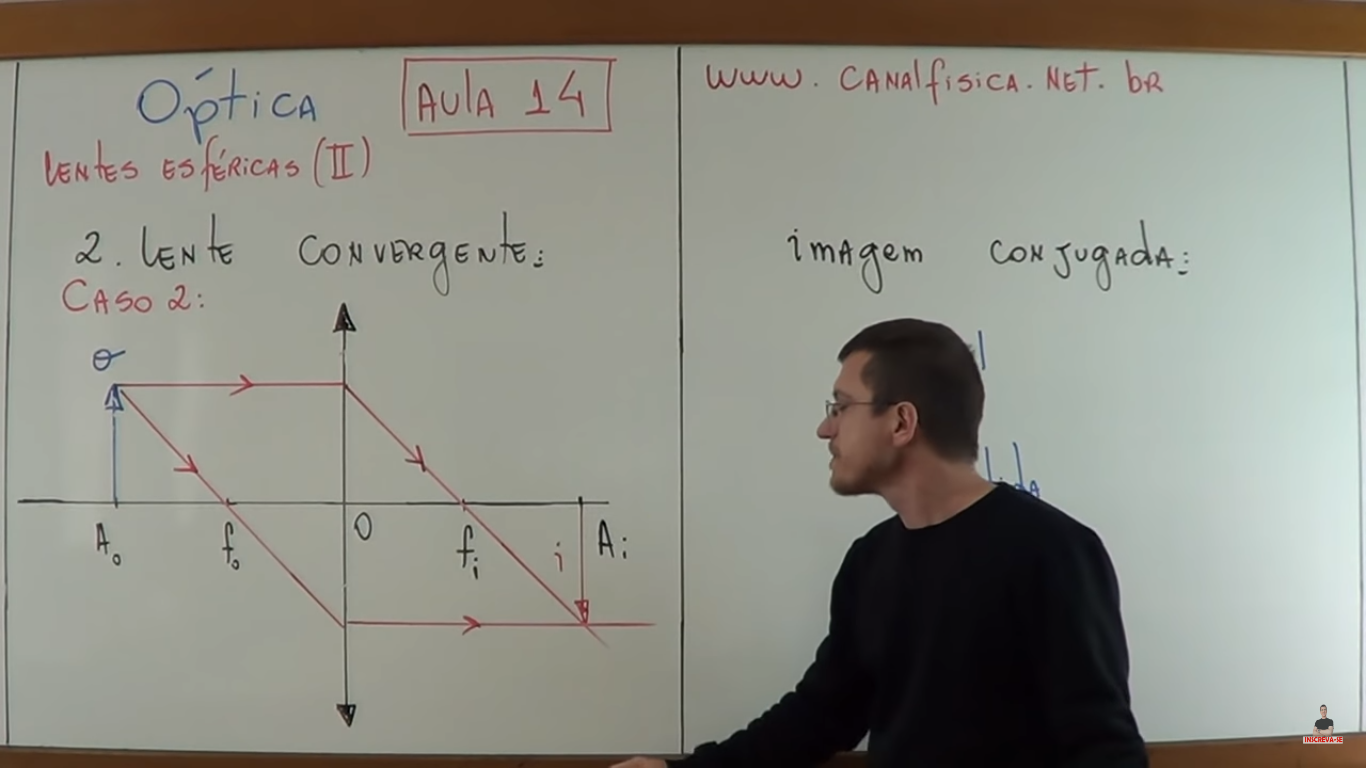 Óptica
AULA 14
LENTES ESFÉRICAS (II)
2. LENTE CONVERGENTE:
CASO 2:
o
A₀
f₀
O
fᵢ
i
Aᵢ
www.CANALfísica.NET.bR
imagem CONJUGADA:
INSCREVA-SE